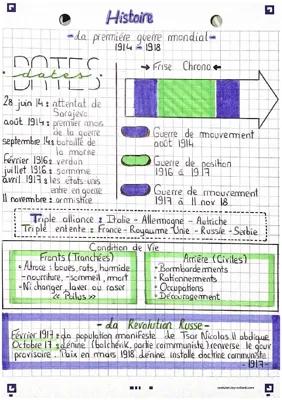 Histoire
- La première guerre mondial -
1914 → 1918
DATES
dates
→ Frise Chrono ←
28 juin 14 : attentat de
Sarajevo
août 1914 : premier mois
de la guerre
septembre 14 : bataille de
la marne
février 1916 : verdun
juillet 1916 : somme
avril 1917 : les états-unis
entre en guerre
11 novembre : armistice
Guerre de mouvement
août 2014
Guerre de position
1916 à 1917
Guerre de mouvement
1917 à 11 nov 18
Triple alliance : Italie - Allemagne - Autriche
Triple entente : France - Royaume-Unie - Russie - Serbie
Condition de Vie
Fronts (Tranchées)
- Atroce : boues, rats, humide
- nourriture, sommeil, mort
- Ni changer laver ou raser
<< Poilus >>
Arrière (Civiles)
- Bombardements
- Rationnements
- Occupations
- Découragement
- La Révolution Russe -
Février 1917 : la population manifeste de Tsar Nicolas II abdique
Octobre 17 : Lénine (bolchévik, partie communiste) renverse le gouv
provisoire. Paix en mars 1918. Lénine installe doctrine communiste
- 1917 -